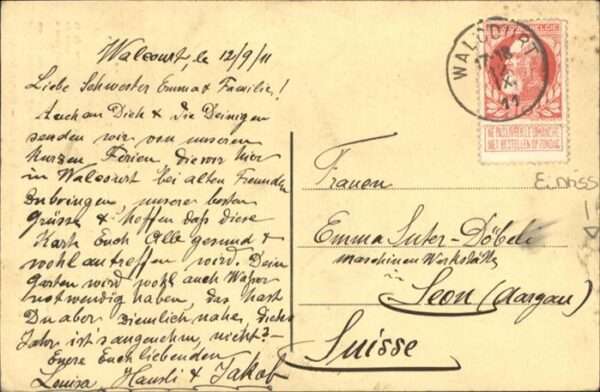 Walcourt, le 12/9/11
Liebe Schwester Emma & Familie!
Auch an Dich & die Deinigen
senden wir von unseren
kurzen Ferien, die wir hier
in Walcourt bei alten Freunden
zubringen, unsere besten
Grüsse & hoffen dass diese
Karte Euch Alle gesund &
wohl antreffen wird. Dein
Garten wird wohl auch Wasser
notwendig haben, das hast
Du aber ziemlich nahe, dieses
Jahr ist's angenehm, nicht?-
Eure Euch liebenden
Louisa, Hansli & Jakob
WALCOURT
11
BELGIE
NE PAS LIVRER LE DIMANCHE
NIET BESTELLEN OP ZONDAG
Frauen
Emma Suter-Döbeli
Maschinen Werkstätte
in
Seon (Aargau)
Suisse